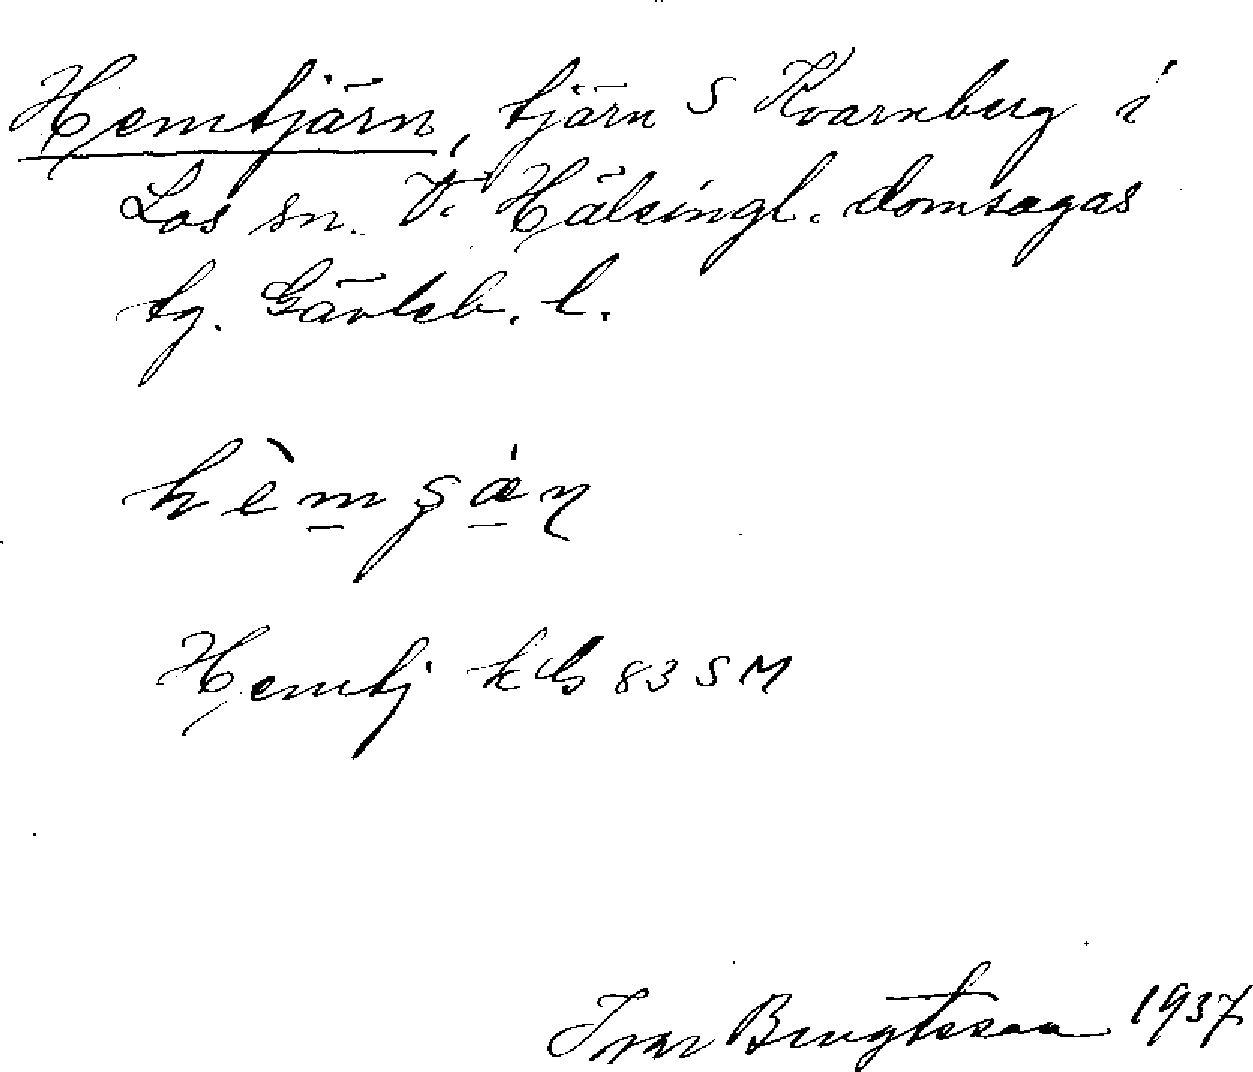 Hemtjärn, tjärn S Kvarnberg i
Los sn. V. Hälsingl. domsagas
tg. Gävleb. l.
hèmʂǽɳ
Hemtj k Gb 83 S M
Ivar Bengtsson 1937